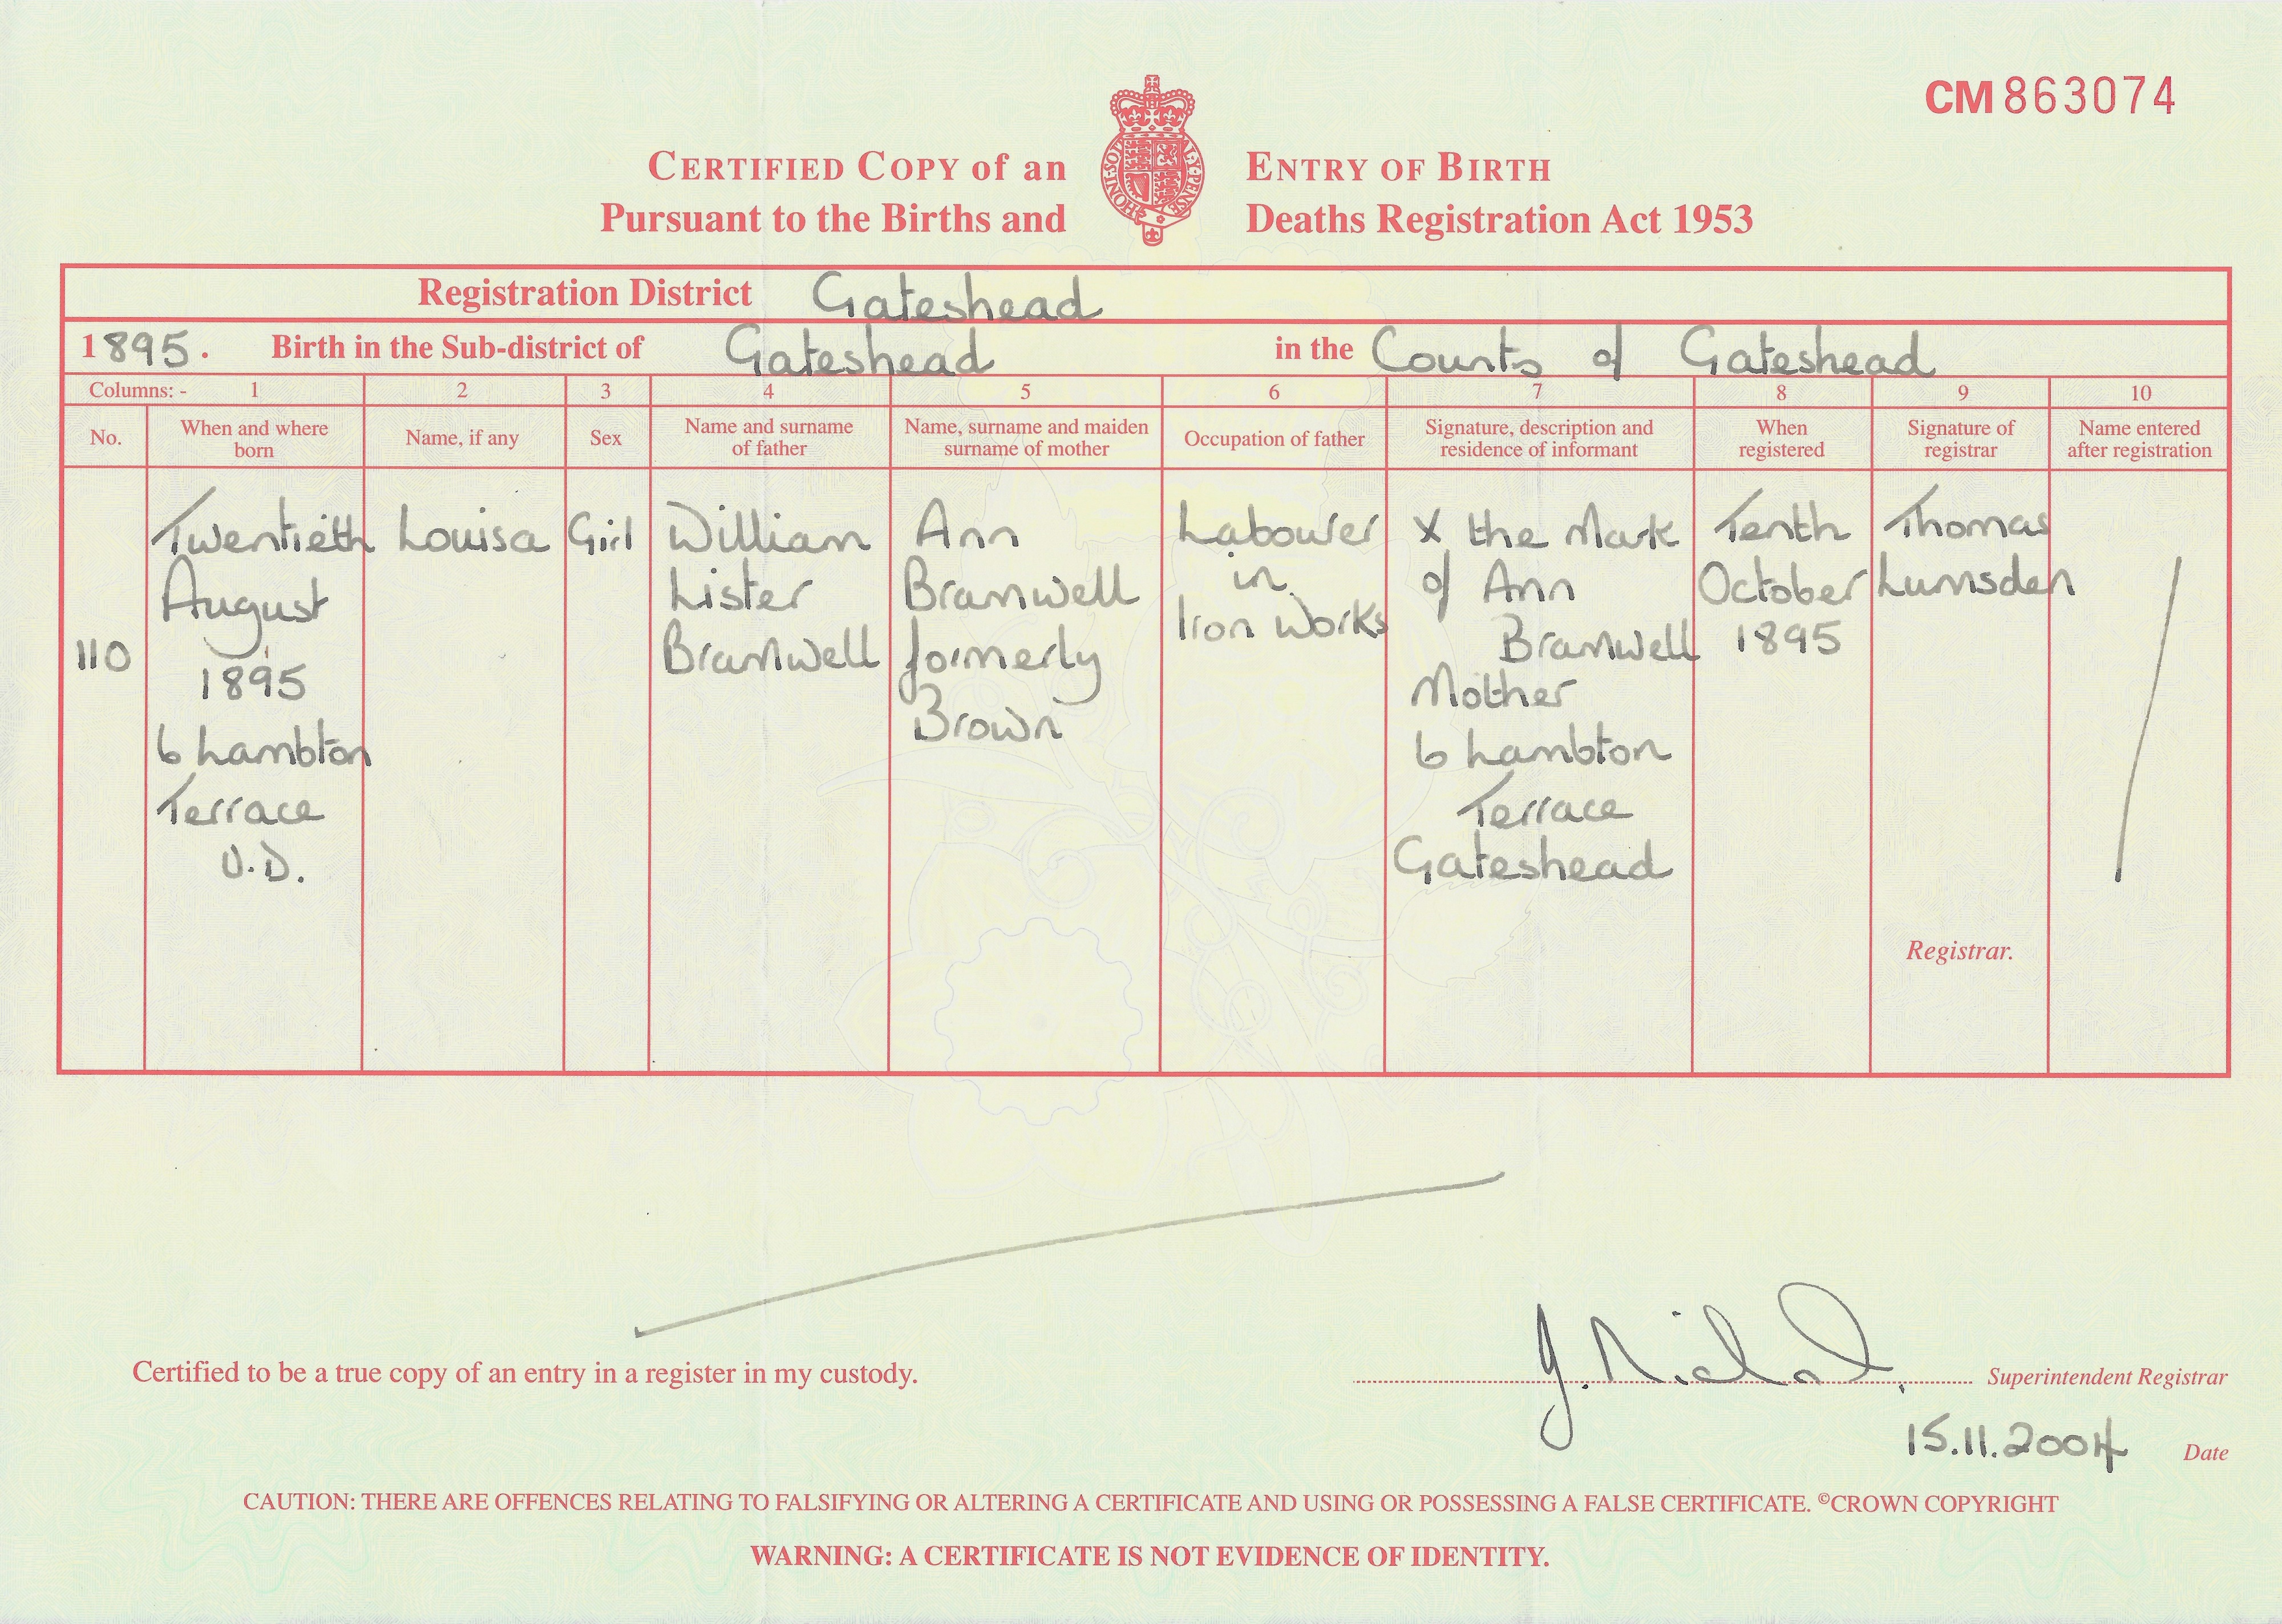 CM 863074
CERTIFIED COPY of an ENTRY OF BIRTH
Pursuant to the Births and Deaths Registration Act 1953
HONI·SOIT Y·PENSE
Registration District Gateshead
1895. Birth in the Sub-district of Gateshead in the County of Gateshead
Columns: - 1 2 3 4 5 6 7 8 9 10
No.
When and where
born
Name, if any
Sex
Name and surname
of father
Name, surname and maiden
surname of mother
Occupation of father
Signature, description and
residence of informant
When
registered
Signature of
registrar
Name entered
after registration
110
Twentieth
August
1895
6 Lambton
Terrace
U.D.
Louisa
Girl
William
Lister
Bramwell
Ann
Bramwell
formerly
Brown
Labourer
in
Iron Works
X the Mark
of Ann
Bramwell
Mother
6 Lambton
Terrace
Gateshead
Tenth
October
1895
Thomas
Lumsden
Registrar.
Certified to be a true copy of an entry in a register in my custody.
Superintendent Registrar
15.11.2004 Date
CAUTION: THERE ARE OFFENCES RELATING TO FALSIFYING OR ALTERING A CERTIFICATE AND USING OR POSSESSING A FALSE CERTIFICATE. ©CROWN COPYRIGHT
WARNING: A CERTIFICATE IS NOT EVIDENCE OF IDENTITY.